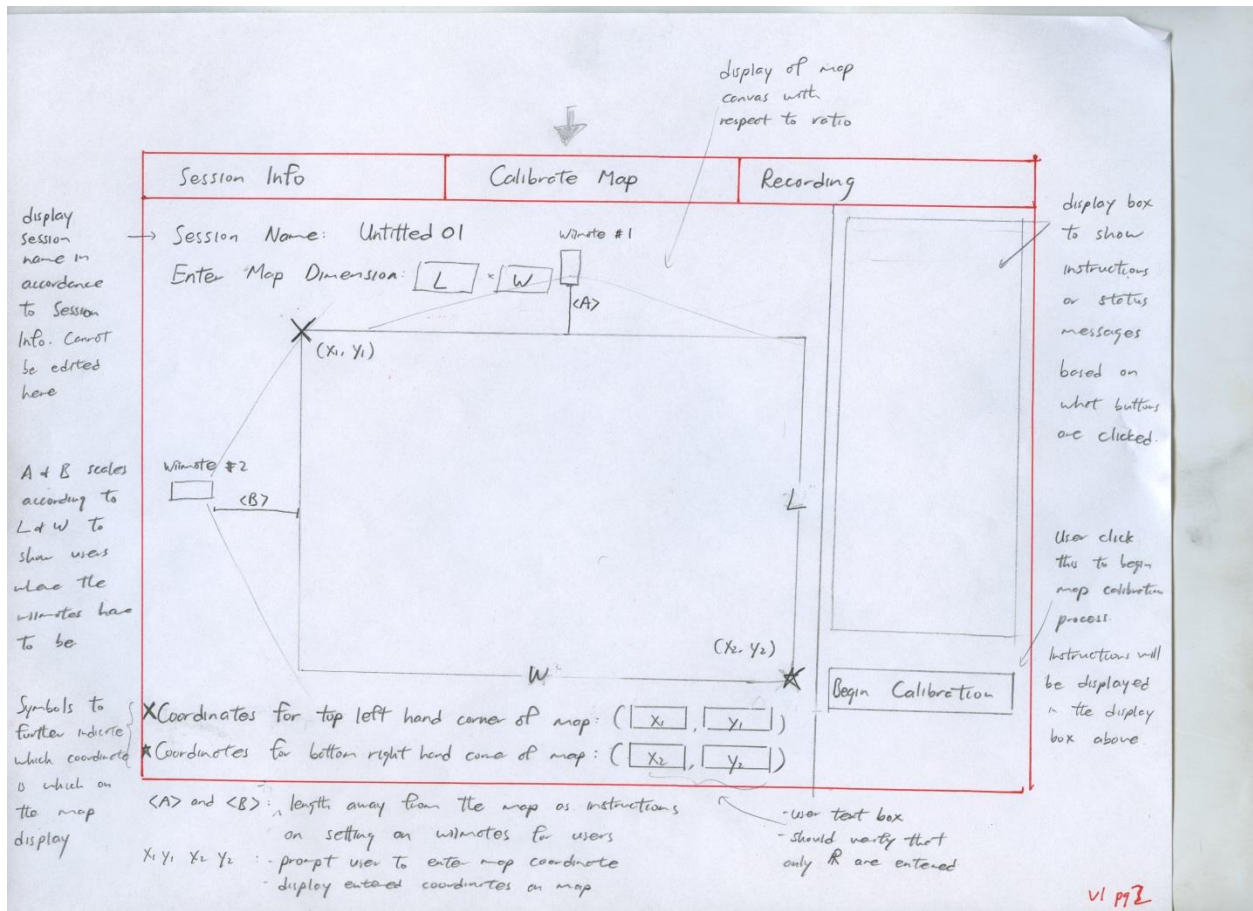 display of map
canvas with
respect to ratio
Session Info
Calibrate Map
Recording
display
session
name in
accordance
to Session
Info. Cannot
be edited
here
Session Name: Untitled 01
Enter Map Dimension: L × W
Wiimote #1
<A>
(X₁, Y₁)
display box
to show
instructions
or status
messages
based on
what buttons
are clicked.
A & B scales
according to
L & W to
show users
where the
wiimotes have
to be
Wiimote #2
<B>
L
(X₂, Y₂)
W
User click
this to begin
map calibration
process.
Instructions will
be displayed
in the display
box above
Begin Calibration
Symbols to
further indicate
which coordinate
is which on
the map
display
X Coordinates for top left hand corner of map: ( X₁ , Y₁ )
★ Coordinates for bottom right hand corne of map: ( X₂ , Y₂ )
<A> and <B>: length away from the map as instructions
on setting on wiimotes for users
X₁ Y₁ X₂ Y₂ : - prompt user to enter map coordinate
- display entered coordinates on map
- user text box
- should verify that
only ℝ are entered
V1 pg 2